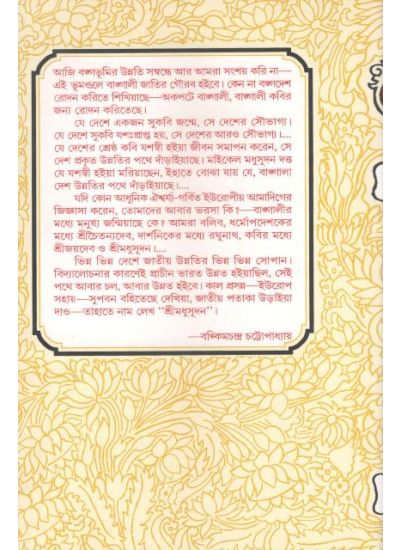 আজি বঙ্গভূমির উন্নতি সম্বন্ধে আর আমরা সংশয় করি না—
এই ভূমণ্ডলে বাঙ্গালী জাতির গৌরব হইবে। কেন না বঙ্গদেশ
রোদন করিতে শিখিয়াছে—অকপটে বাঙ্গালী, বাঙ্গালী কবির
জন্য রোদন করিতেছে।
যে দেশে একজন সুকবি জন্মে, সে দেশের সৌভাগ্য।
যে দেশে সুকবি যশঃপ্রাপ্ত হয়, সে দেশের আরও সৌভাগ্য।....
যে দেশের শ্রেষ্ঠ কবি যশস্বী হইয়া জীবন সমাপন করেন, সে
দেশ প্রকৃত উন্নতির পথে দাঁড়াইয়াছে। মাইকেল মধুসূদন দত্ত
যে যশস্বী হইয়া মরিয়াছেন, ইহাতে বোঝা যায় যে, বাঙ্গালা
দেশ উন্নতির পথে দাঁড়াইয়াছে।....
যদি কোন আধুনিক ঐশ্বর্য্য-গর্বিত ইউরোপীয় আমাদিগের
জিজ্ঞাসা করেন, তোমাদের আবার ভরসা কি?—বাঙ্গালীর
মধ্যে মনুষ্য জন্মিয়াছে কে? আমরা বলিব, ধর্মোপদেশকের
মধ্যে শ্রীচৈতন্যদেব, দার্শনিকের মধ্যে রঘুনাথ, কবির মধ্যে
শ্রীজয়দেব ও শ্রীমধুসূদন।....
ভিন্ন ভিন্ন দেশে জাতীয় উন্নতির ভিন্ন ভিন্ন সোপান।
বিদ্যালোচনার কারণেই প্রাচীন ভারত উন্নত হইয়াছিল, সেই
পথে আবার চল, আবার উন্নত হইবে। কাল প্রসন্ন—ইউরোপ
সহায়—সুপবন বহিতেছে দেখিয়া, জাতীয় পতাকা উড়াইয়া
দাও—তাহাতে নাম লেখ "শ্রীমধুসূদন"।
—বঙ্কিমচন্দ্র চট্টোপাধ্যায়